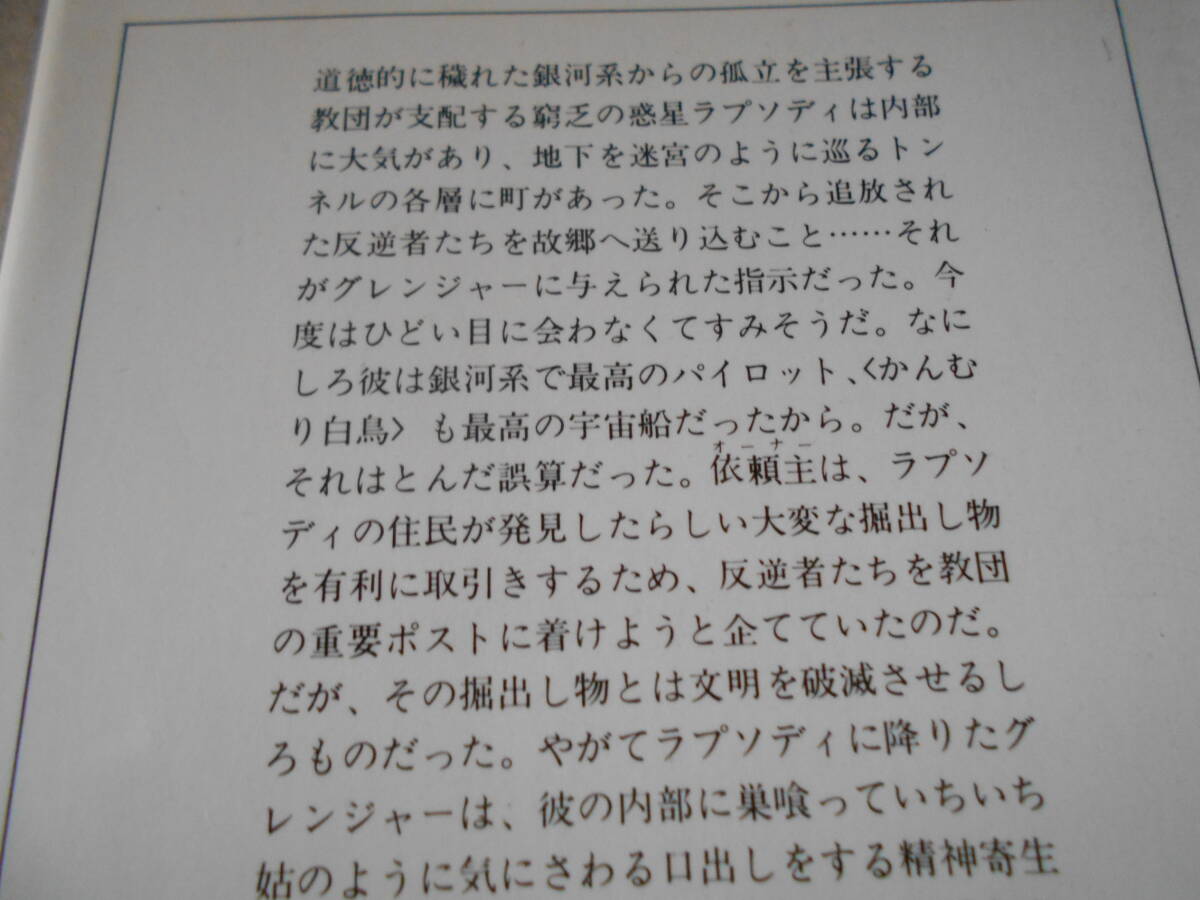 道徳的に穢れた銀河系からの孤立を主張する
教団が支配する窮乏の惑星ラプソディは内部
に大気があり、地下を迷宮のように巡るトン
ネルの各層に町があった。そこから追放され
た反逆者たちを故郷へ送り込むこと……それ
がグレンジャーに与えられた指示だった。今
度はひどい目に会わなくてすみそうだ。なに
しろ彼は銀河系で最高のパイロット、〈かんむ
り白鳥〉も最高の宇宙船だったから。だが、
オーナー
それはとんだ誤算だった。依頼主は、ラプソ
ディの住民が発見したらしい大変な掘出し物
を有利に取引きするため、反逆者たちを教団
の重要ポストに着けようと企てていたのだ。
だが、その掘出し物とは文明を破滅させるし
ろものだった。やがてラプソディに降りたグ
レンジャーは、彼の内部に巣喰っていちいち
姑のように気にさわる口出しをする精神寄生